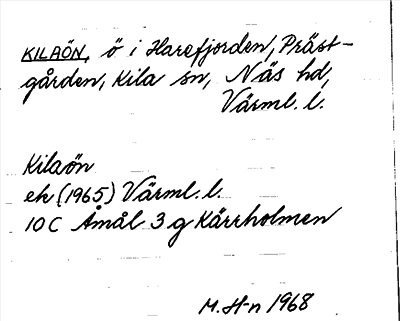 KILAÖN, ö i Harefjorden, Präst-
gården, Kila sn, Näs hd,
Värml. l.
Kilaön
ek (1965) Värml. l.
10 C Åmål 3 g Kärrholmen
M. H-n 1968